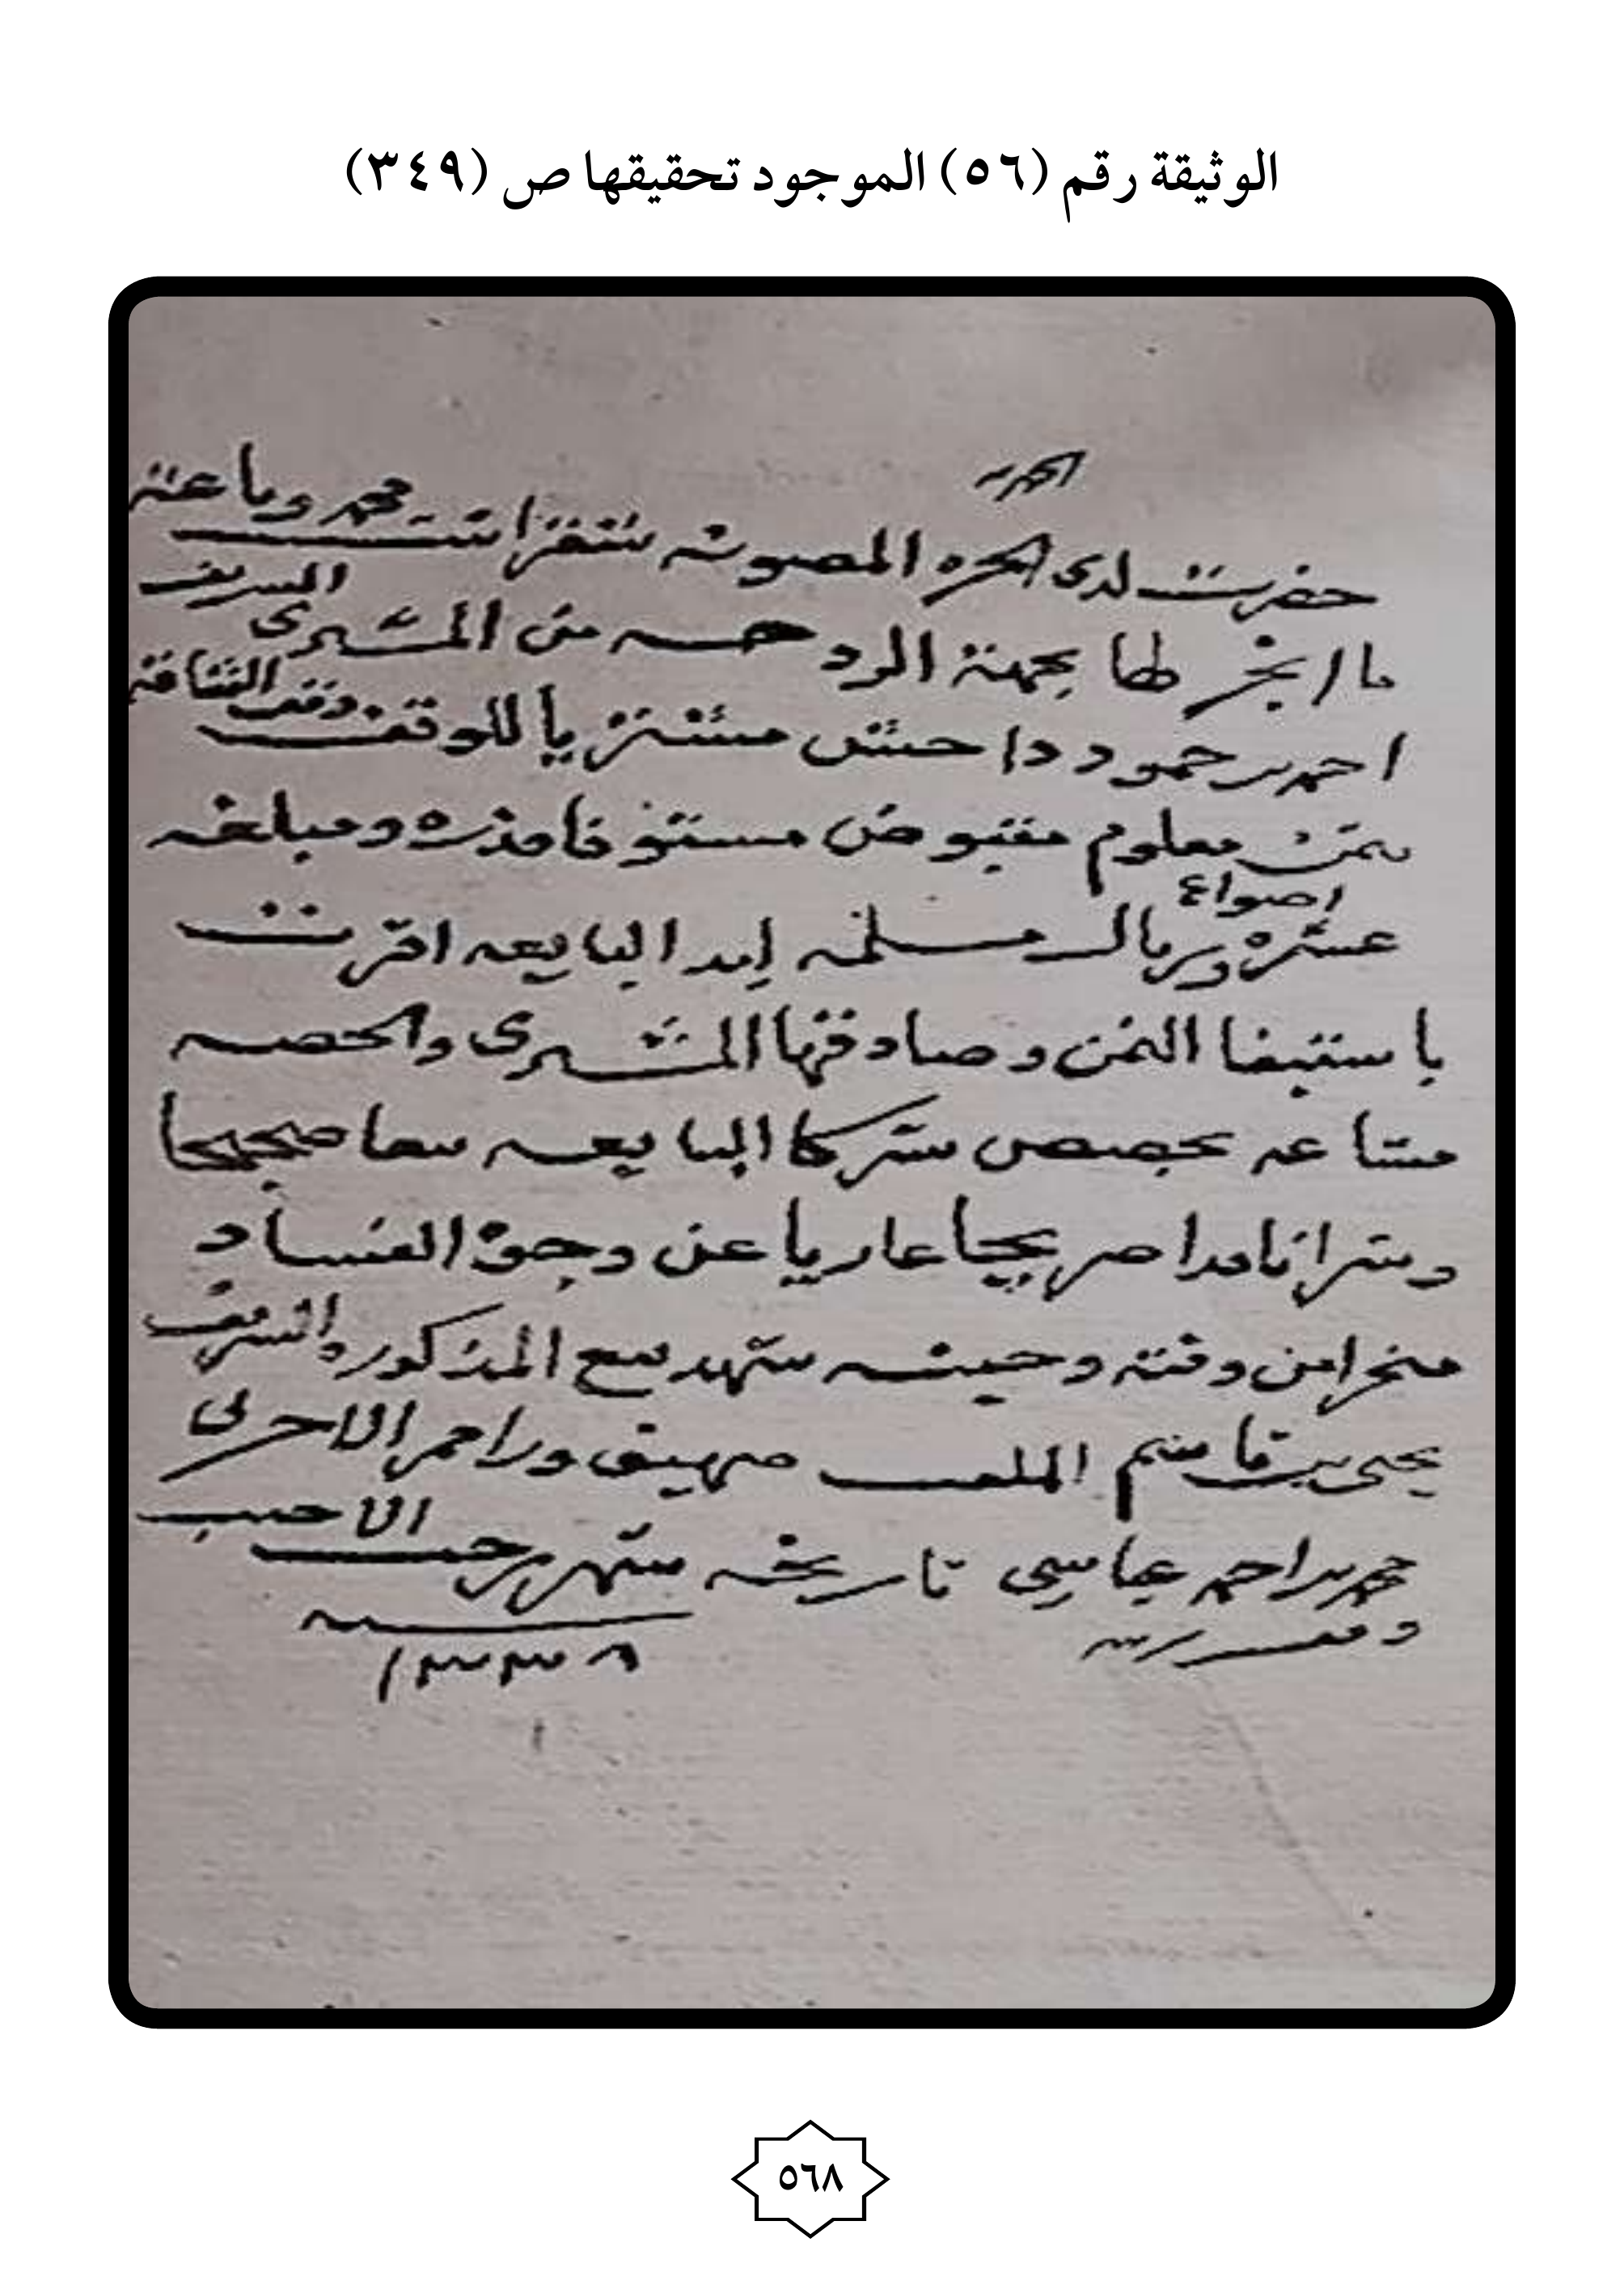 الوثيقة رقم (٥٦) الموجود تحقيقها ص (٣٤٩)
الحمد لله
حضرت لدي الحره المصونه محمد وباعته
ما انجر لها بجهة الرد من المشتري الشريف
احمد بن حمود مشتريا للوقف وقف
بثمن معلوم مقبوض مستوفا قدره ومبلغه
عشره اصواع وريال مسلمه ليد البايعه اقرت
باستيفا الثمن وصادقها المشتري والحصه
مشاعه بحصص شركا البايعه بيعا صحيحا
وشرا نافذا صريحا عاريا عن وجوه الفساد
منجرا من وقته وحينه شهد مع المذكوره الشريف
يحيى بن قاسم الملقب
محمد بن احمد عباسي تاريخه شهر رجب الاصب
سنه
١٣٣٨
٥٦٨